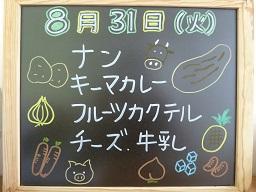 8月31日(火)
ナン
キーマカレー
フルーツカクテル
チーズ.牛乳